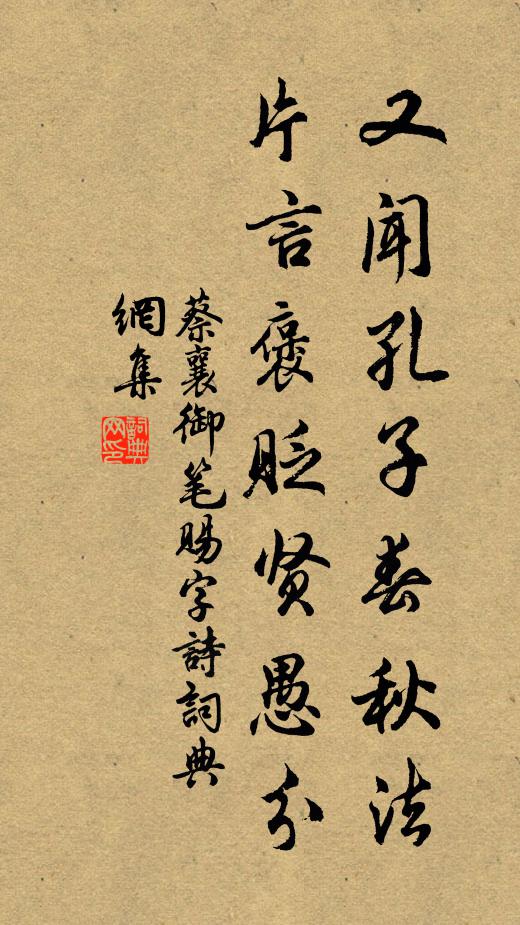 又闻孔子春秋法
片言褒贬贤愚分
蔡襄御笔赐字詩詞典
網集
詞典
网印